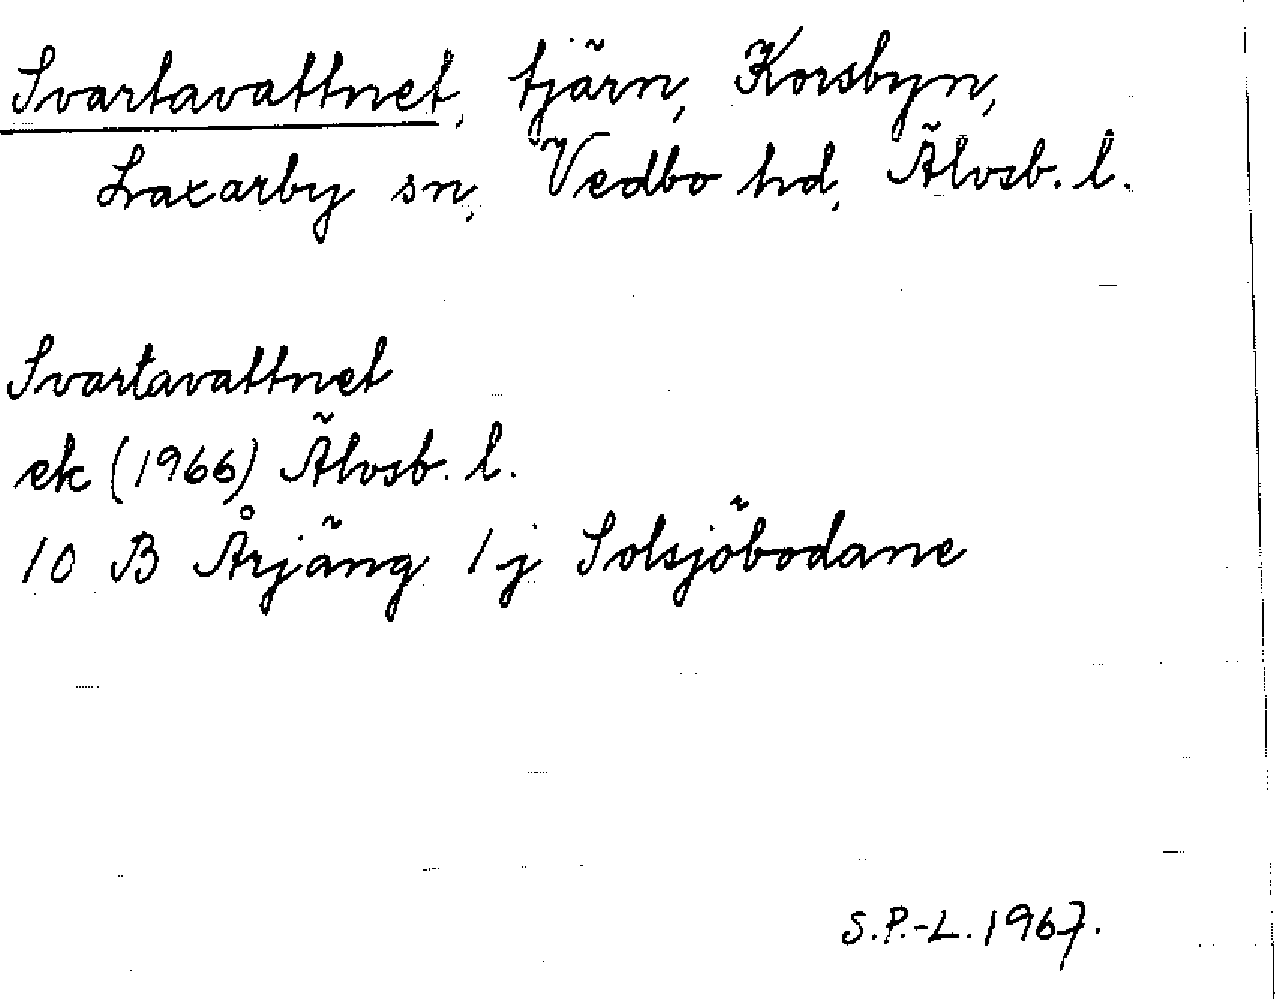 Svartavattnet, tjärn, Korsbyn,
Laxarby sn, Vedbo hd, Älvsb. l.
Svartavattnet
ek (1966) Älvsb. l.
10 B Årjäng 1 j Solsjöbodane
S.P.-L. 1967.